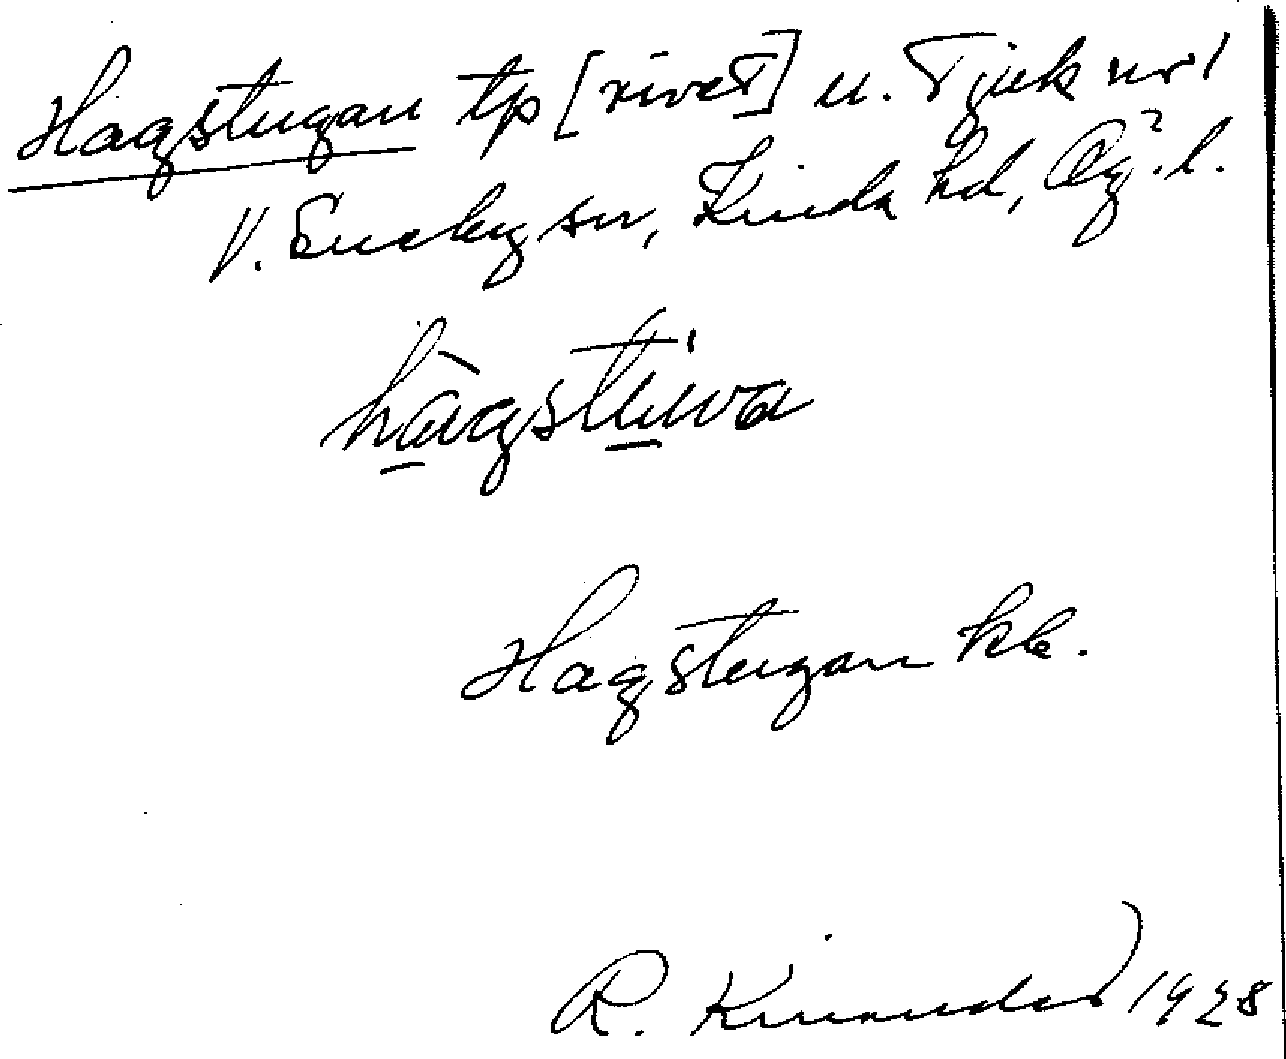 Hagstugan tp [rivet] u. Tjuk nr 1
V. Eneby sn, Kinda hd, Ög. l.
hàgstúwa
Hagstugan kk.
R. Kinander 1928